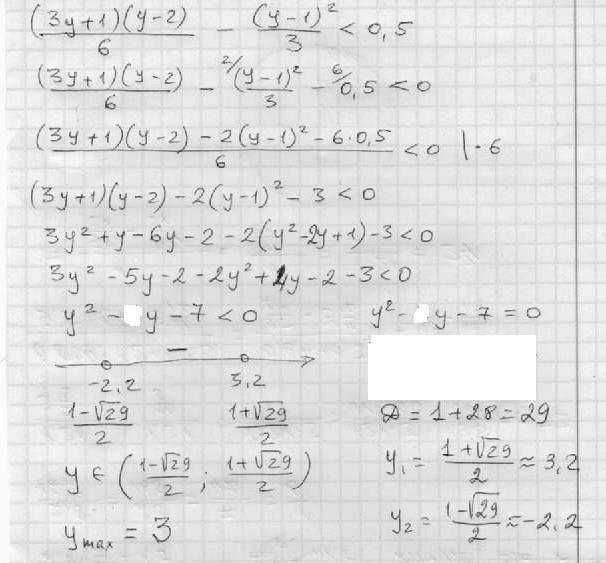 (3y+1)(y-2)/6 - (y-1)²/3 < 0,5
(3y+1)(y-2)/6 - ²/(y-1)²/3 - ⁶/0,5 < 0
(3y+1)(y-2) - 2(y-1)² - 6·0,5/6 < 0 |·6
(3y+1)(y-2) - 2(y-1)² - 3 < 0
3y² + y - 6y - 2 - 2(y² - 2y + 1) - 3 < 0
3y² - 5y - 2 - 2y² + 4y - 2 - 3 < 0
y² - y - 7 < 0
−
-2,2 3,2
1-√29/2 1+√29/2
y ∈ (1-√29/2 ; 1+√29/2)
y max = 3
y² - y - 7 = 0
D = 1 + 28 = 29
y₁ = 1+√29/2 ≈ 3,2
y₂ = 1-√29/2 ≈ -2,2